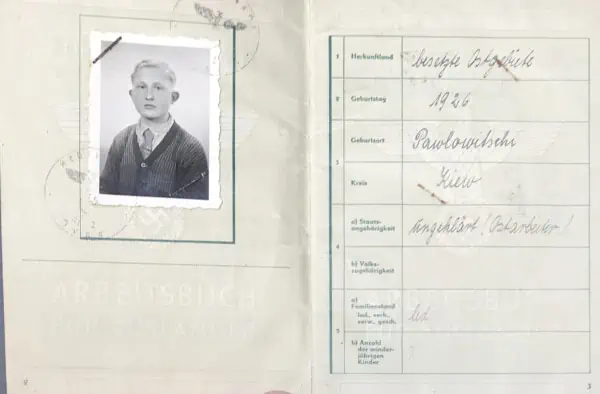 ARBEITSBUCH
1 Herkunftland besetzte Ostgebiete
2 Geburtstag 1926
Geburtsort Pawlowitschi
3
Kreis Kiew
a) Staats-
angehörigkeit ungeklärt (Ostarbeiter)
4
b) Volks-
zugehörigkeit
a)
Familienstand
led., verh.,
verw., gesch. led
5
b) Anzahl
der minder-
jährigen
Kinder
3